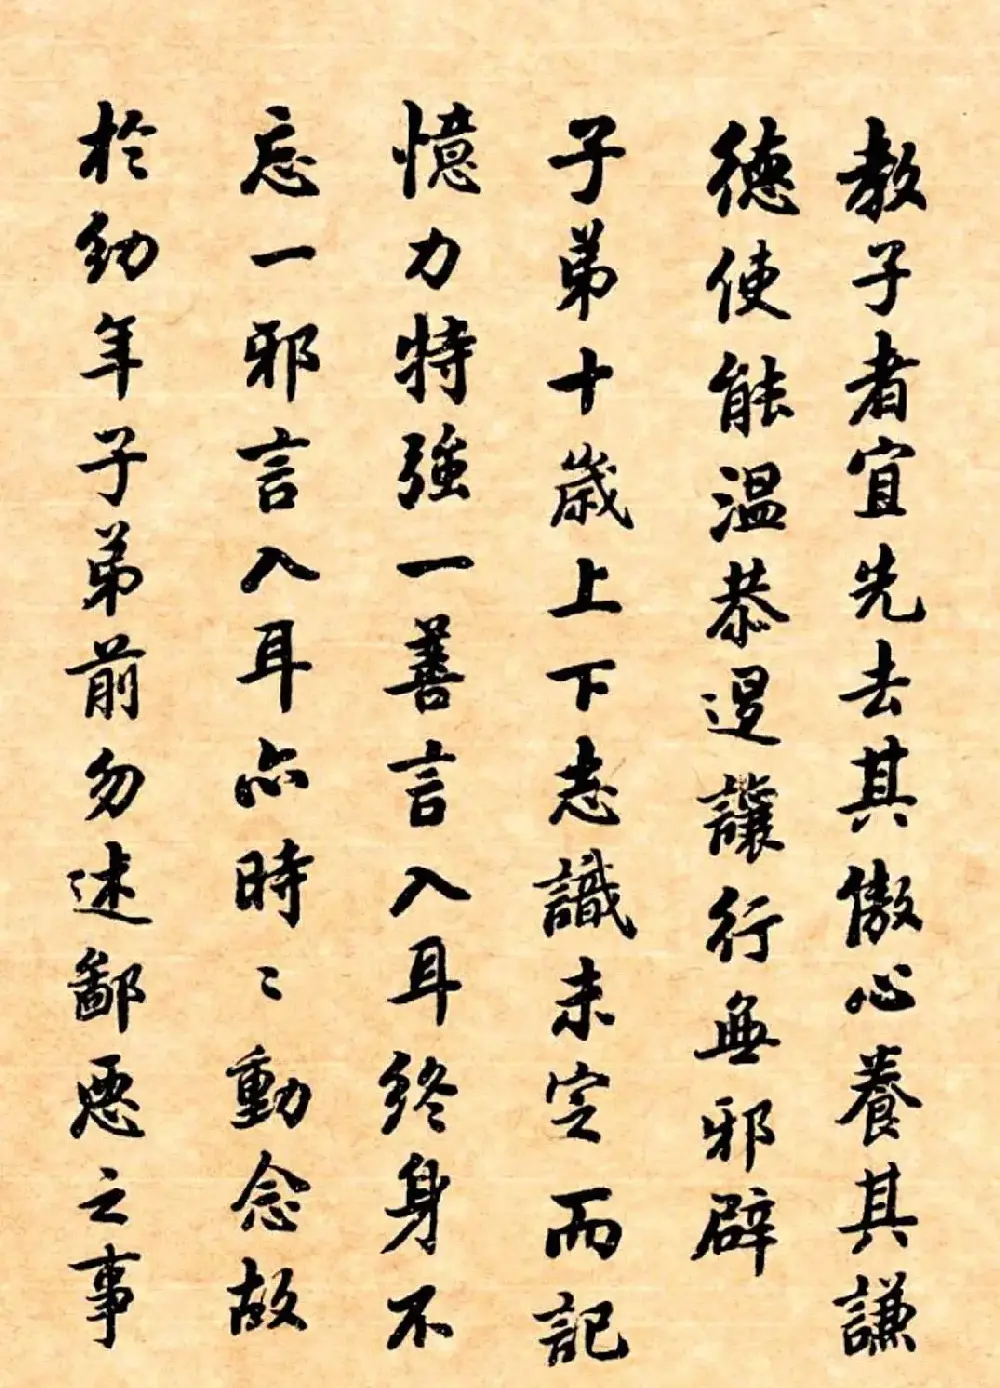 教子者宜先去其傲心養其謙
德使能溫恭退讓行無邪辟
子弟十歲上下志識未定而記
憶力特強一善言入耳終身不
忘一邪言入耳亦時〻動念故
於幼年子弟前勿述鄙惡之事